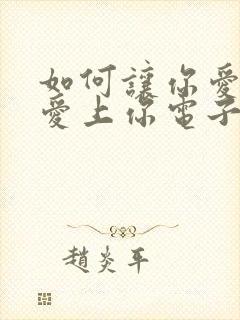 如何讓你愛
愛上你電子
趙炎平